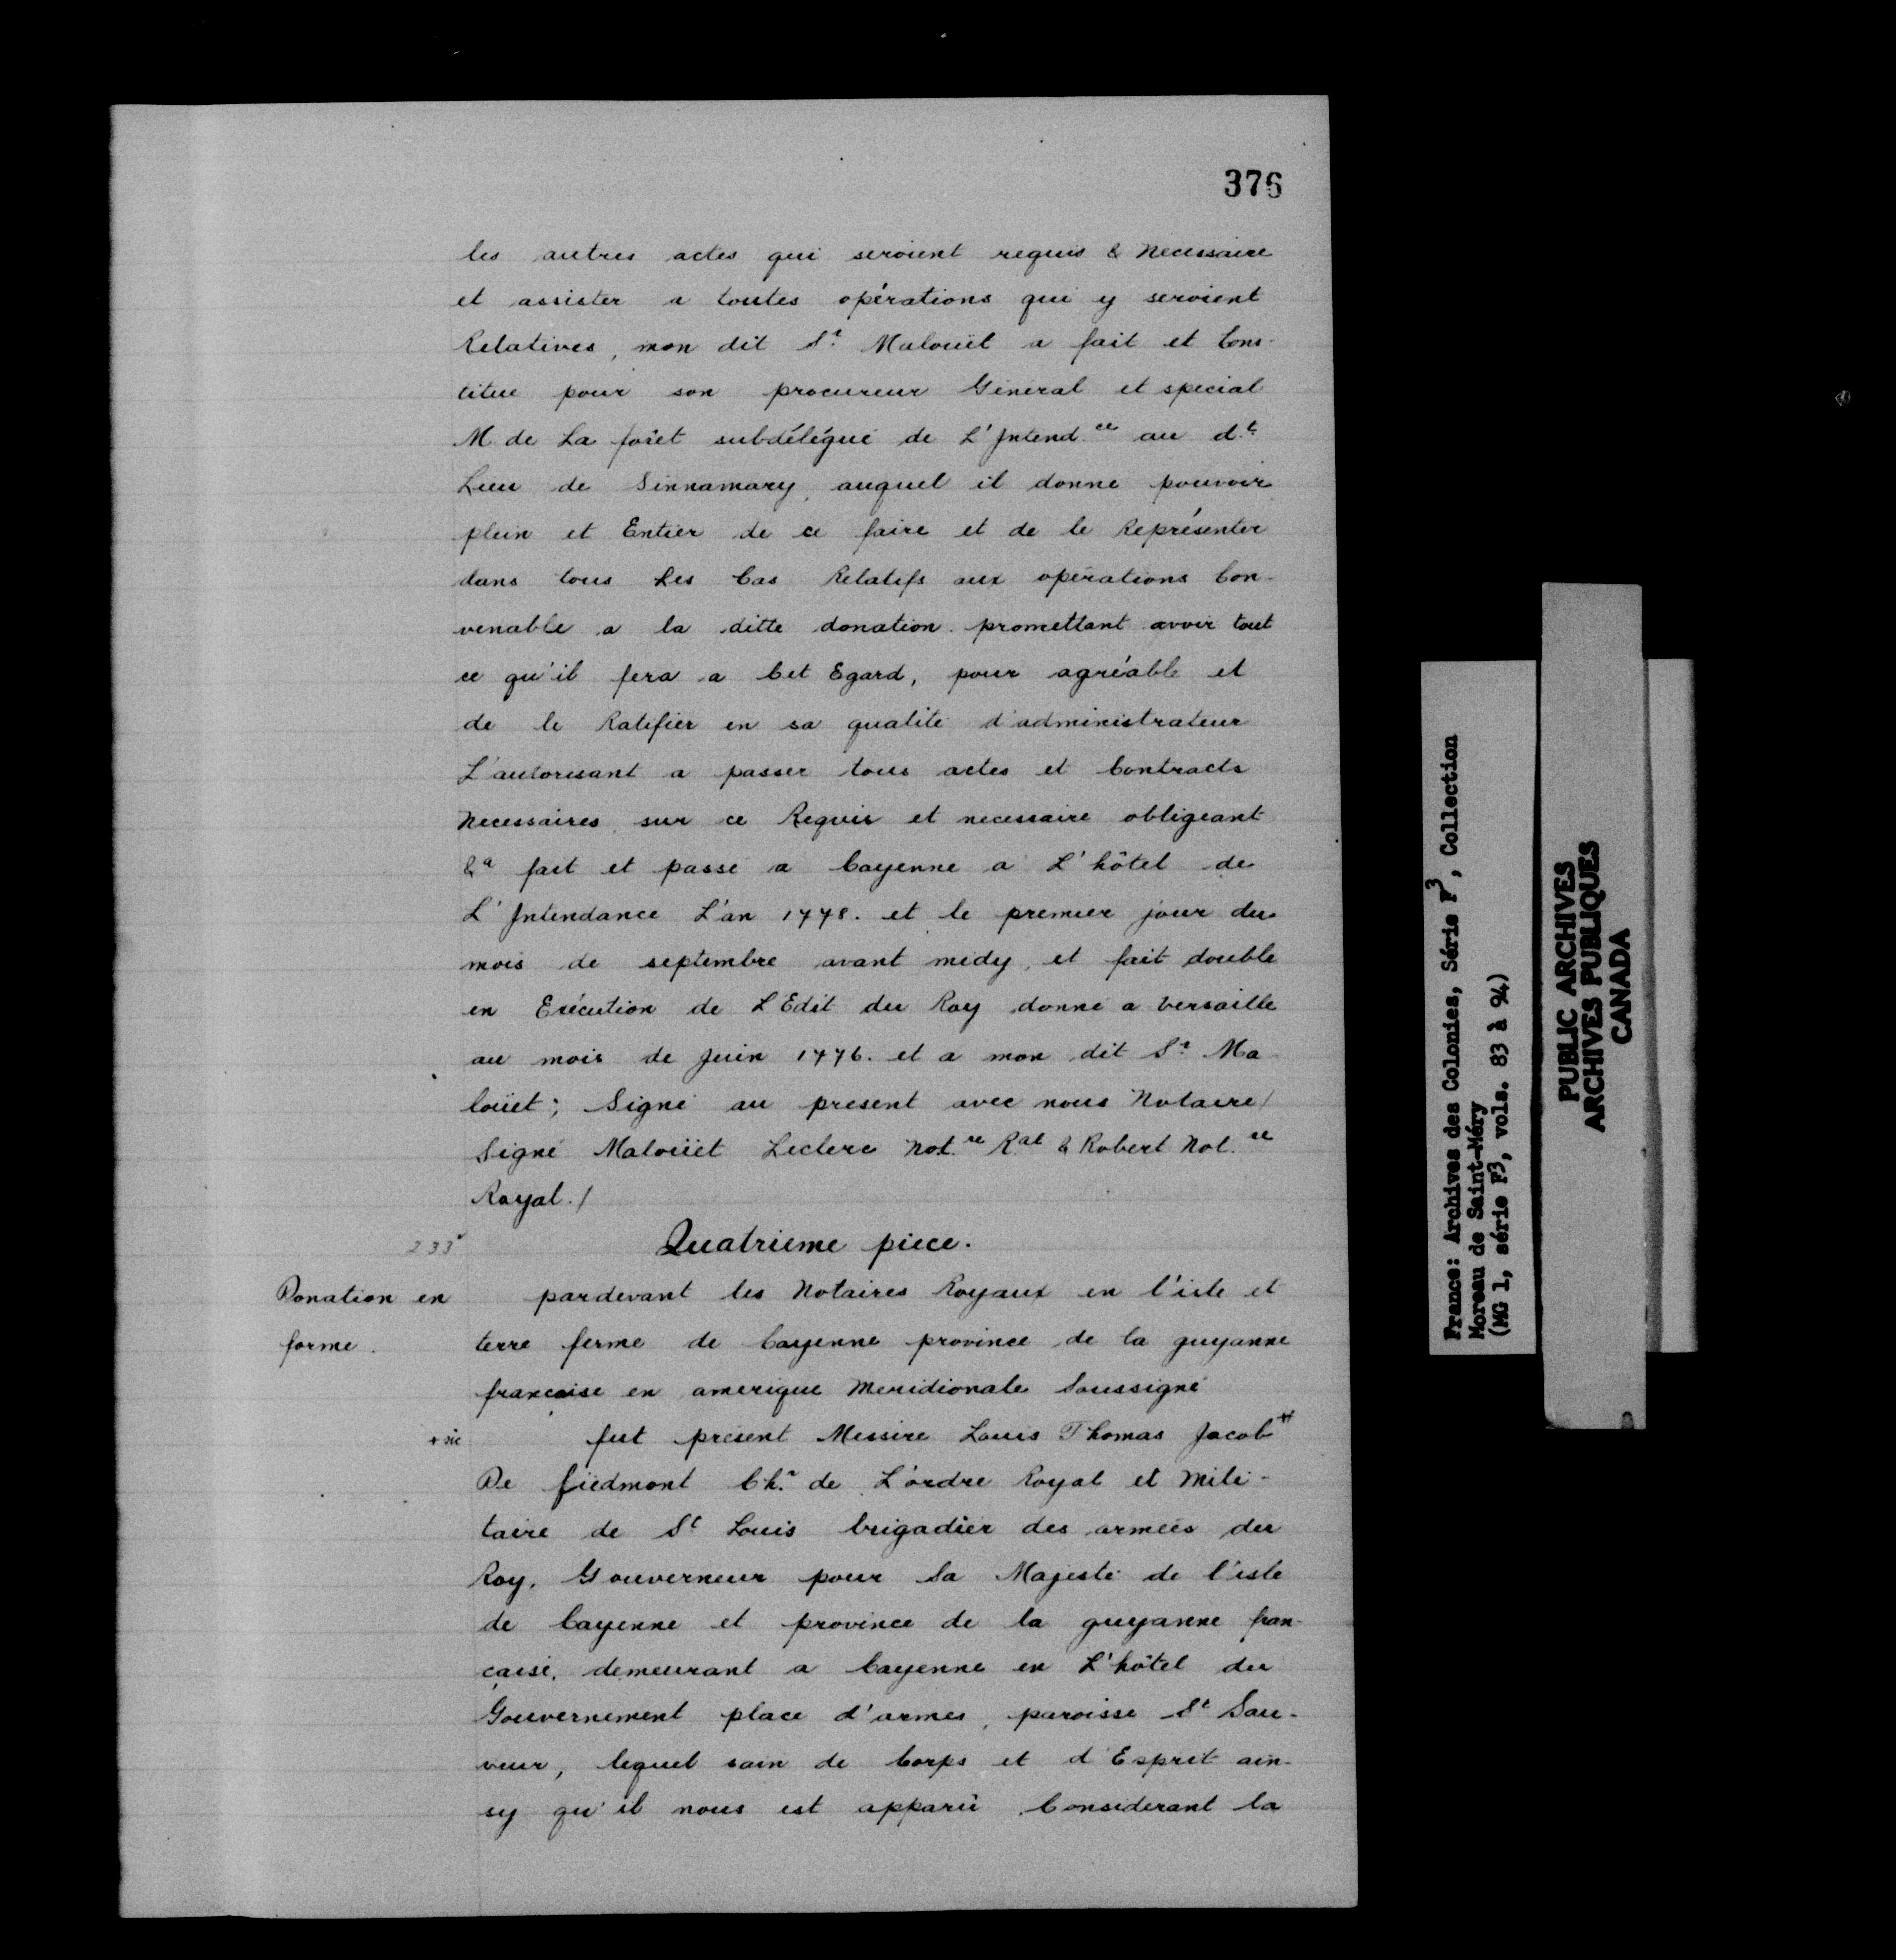 376
les autres actes qui seroient requis & Necessaire
et assister a toutes opérations qui y seroient
Relatives, mon dit Sr. Malouët a fait et Cons-
titue pour son procureur Géneral et special
M de La forêt subdélégué de L'Intend.ce au d.t
Lieu de Sinnamary, auquel il donne pouvoir
plein et Entier de ce faire et de le Représenter
dans tous Les Cas Relatifs aux opérations Con-
venable a la ditte donation promettant avoir tout
ce qu'il fera a Cet Egard, pour agréable et
de le Ratifier en sa qualité d'administrateur
L'autorisant a passer tous actes et Contracts
Necessaires sur ce Requis et necessaire obligeant
&a fait et passé a Cayenne a L'hôtel de
L'Intendance L'an 1778. et le premier jour du
mois de septembre avant midy, et fait double
en Exécution de L'Edit du Roy donné a Versaille
au mois de Juin 1776. et a mon dit Sr. Ma-
loüet; Signé au present avec nous Notaire/
Signé Maloüet Leclerc Not.re R.al & Robert Not.re
Royal./
233
Quatrieme piece.
Donation en
forme.
pardevant les Notaires Royaux en l'isle et
terre ferme de Cayenne province de la guyanne
françoise en amerique Meridionale Soussigné
+ sic
fut présent Messire Louis Thomas Jacob+
De fiedmont Ch.r de L'ordre Royal et Mili-
taire de St Louis brigadier des armées du
Roy, Gouverneur pour Sa Majesté de l'isle
de Cayenne et province de la guyanne fran-
çaise, demeurant a Cayenne en L'hôtel du
Gouvernement place d'armes, paroisse St Sau-
veur, lequel sain de Corps et d'Esprit ain-
sy qu'il nous est apparû Considerant la
France: Archives des Colonies, Série F3, Collection
Moreau de Saint-Méry
(MG 1, série F3, vols. 83 à 94)
PUBLIC ARCHIVES
ARCHIVES PUBLIQUES
CANADA